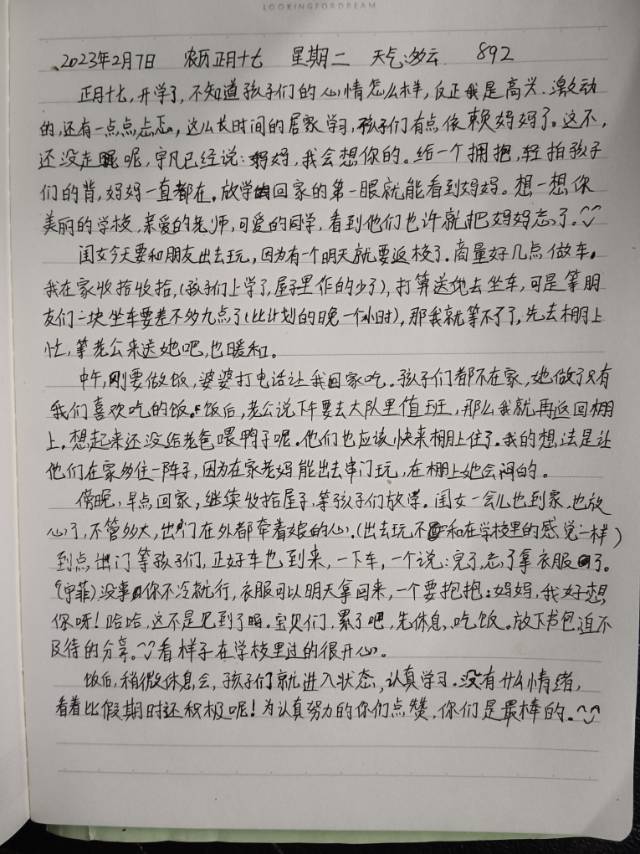 LOOKINGFORDREAM
2023年2月7日 农历正月十七 星期二 天气:多云 892
正月十七,开学了,不知道孩子们的心情怎么样,反正我是高兴、激动
的,还有一点点忐忑,这么长时间的居家学习,孩子们有点依赖妈妈了。这不,
还没走呢,宇凡已经说:妈妈,我会想你的。给一个拥抱,轻拍孩子
们的背,妈妈一直都在,放学回家的第一眼就能看到妈妈。想一想你
美丽的学校,亲爱的老师,可爱的同学,看到他们也许就把妈妈忘了。
闺女今天要和朋友出去玩,因为有一个明天就要返校了。商量好几点做车。
我在家收拾收拾,(孩子们上学了,屋子里作的少了),打算送她去坐车,可是等朋
友们一块坐车要差不多九点了(比计划的晚一个小时),那我就等不了了,先去棚上
忙,等老公来送她吧,也暖和。
中午,刚要做饭,婆婆打电话让我回家吃。孩子们都不在家,她做了只有
我们喜欢吃的饭。饭后,老公说下午要去大队里值班,那么我就再返回棚
上,想起来还没给老爸喂鸭子呢。他们也应该快来棚上住了。我的想法是让
他们在家多住一阵子,因为在家老妈能出去串门玩,在棚上她会闷的。
傍晚,早点回家,继续收拾屋子,等孩子们放学。闺女一会儿也到家,也放
心了,不管多大,出门在外都牵着娘的心,(出去玩和在学校里的感觉不一样)
到点出门等孩子们,正好车也到来,一下车,一个说:完了,忘了拿衣服了。
(宇菲)没事,你不冷就行,衣服可以明天拿回来,一个要抱抱:妈妈,我好想
你呀!哈哈,这不是见到了嘛。宝贝们,累了吧,先休息、吃饭。放下书包迫不
及待的分享。看样子在学校里过的很开心。
饭后,稍微休息会,孩子们就进入状态,认真学习。没有什么情绪,
看着比假期时还积极呢!为认真努力的你们点赞,你们是最棒的。